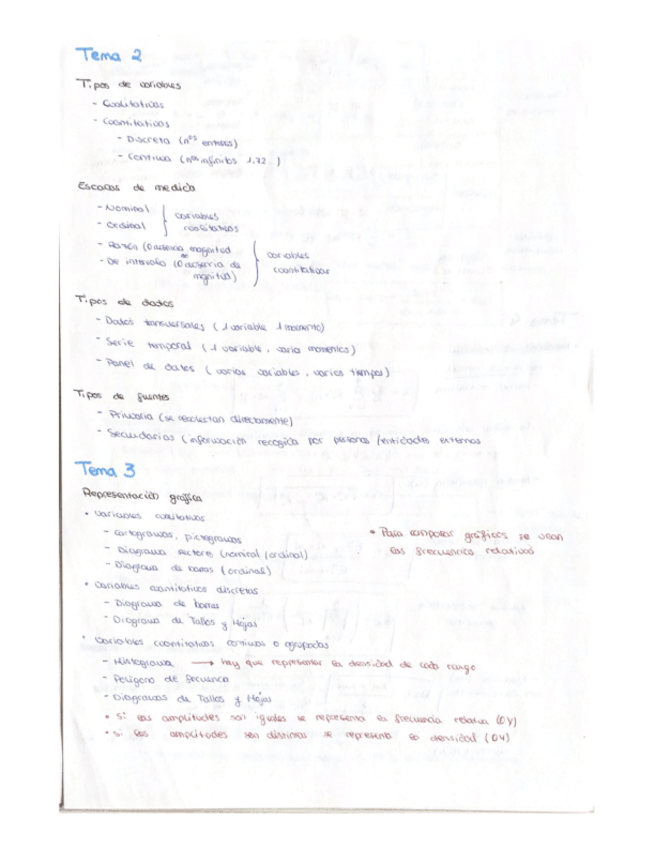 Tema 2
Tipos de variables
- Cualitativas
- Cuantitativas
- Discreta (nºs enteros)
- Continua (nºs infinitos 1,72...)
Escalas de medida
- Nominal
- Ordinal
} variables cualitativas
- Razón (0 ausencia magnitud
- De intervalo (0 no ausencia de magnitud)
} variables cuantitativas
Tipos de datos
- Datos transversales (1 variable 1 momento)
- Serie temporal (1 variable, varios momentos)
- Panel de datos (varias variables, varios tiempos)
Tipos de fuentes
- Primaria (se recolectan directamente)
- Secundarias (información recogida por personas/entidades externas
Tema 3
Representación gráfica
• Variables cualitativas
- Cartogramas, pictogramas
- Diagrama sectores (nominal/ordinal)
- Diagrama de barras (ordinal)
• Para comparar gráficos se usan
las frecuencias relativas
• Variables cuantitativas discretas
- Diagrama de barras
- Diagrama de Tallos y Hojas
• Variables cuantitativas continuas o agrupadas
- Histograma → hay que representar la densidad de cada rango
- Polígono de frecuencia
- Diagramas de Tallos y Hojas
• Si las amplitudes son iguales se representa la frecuencia relativa (OY)
• Si las amplitudes son distintas se representa la densidad (OY)